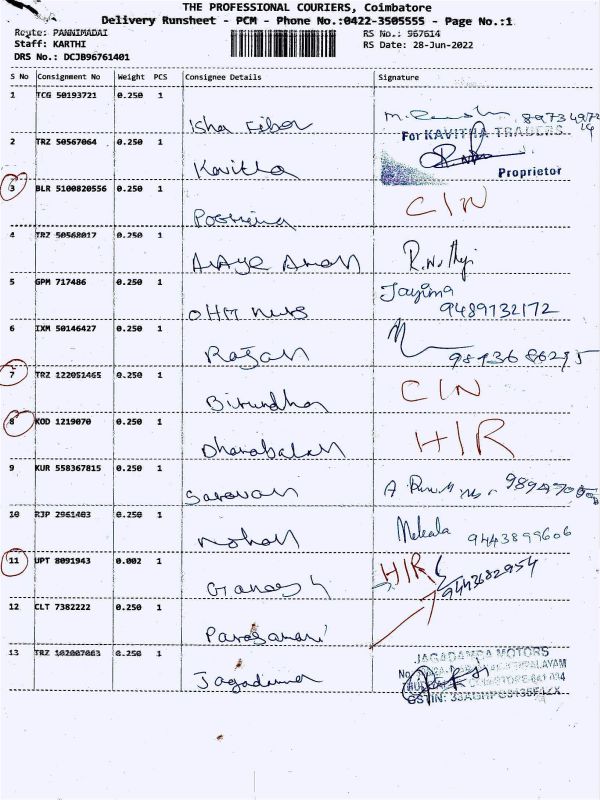 THE PROFESSIONAL COURIERS, Coimbatore
Delivery Runsheet - PCM - Phone No.:0422-3505555 - Page No.:1
Route: PANNIMADAI RS No.: 967614
Staff: KARTHI RS Date: 28-Jun-2022
DRS No.: DCJB96761401
S No Consignment No Weight PCS Consignee Details Signature
1 TCG 50193721 0.250 1
Isha Fiber
2 TRZ 50567064 0.250 1 For KAVITHA TRADERS
Kavitha Proprietor
3 BLR 5100820556 0.250 1 CIN
4 TRZ 50568017 0.250 1
5 GPM 717486 0.250 1 Jayima
OHM 9489132172
6 IXM 50146427 0.250 1
Rajan
7 TRZ 122051465 0.250 1 CIN
Birundha
8 KOD 1219070 0.250 1 HIR
Dhanabalan
9 KUR 558367815 0.250 1
Saravan
10 RJP 2961403 0.250 1
Mohan 9443899606
11 UPT 8091943 0.002 1 HIR 9443682954
Ganesh
12 CLT 7382222 0.250 1
13 TRZ 102007063 0.250 1 JAGADAMBA MOTORS
Jagadamba